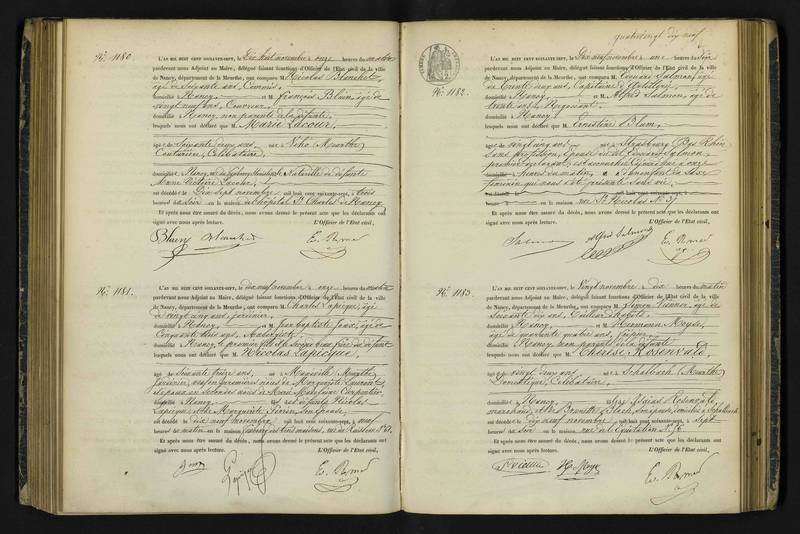 N°. 1180.
L'AN MIL HUIT CENT SOIXANTE-SEPT, Dix huit novembre à onze heures du matin
pardevant nous Adjoint au Maire, délégué faisant fonctions d'Officier de l'Etat civil de la ville
de Nancy, département de la Meurthe, ont comparu M. Nicolas Blanchet,
âgé de Soixante ans, Commis,
domicilié à Nancy, et M. François Blain, âgé de
vingt neuf ans, Couvreur,
domicilié à Nancy, non parents de la défunte,
lesquels nous ont déclaré que M. Marie Lacour,
âgée de Soixante deux ans, née à Viho (Meurthe)
Couturière, Célibataire,
domiciliée à Nancy, naturelle de défunte
Marie
est décédée le Dix sept novembre mil huit cent soixante-sept, à trois
heures du Soir en la maison, à l'hôpital St. Charles de Nancy
Et après nous être assuré du décès, nous avons dressé le présent acte que les déclarants ont
signé avec nous après lecture. L'Officier de l'Etat civil,
Blain Blanchet
N°. 1181.
L'AN MIL HUIT CENT SOIXANTE-SEPT, le dix neuf novembre à onze heures du matin
pardevant nous Adjoint au Maire, délégué faisant fonctions d'Officier de l'Etat civil de la ville
de Nancy, département de la Meurthe, ont comparu M. Charles Lapicque, âgé
de vingt cinq ans, jardinier,
domicilié à Nancy, et M. Jean Baptiste âgé de
Cinquante trois ans,
domicilié à Nancy, le premier fils et le second beau frère du défunt
lesquels nous ont déclaré que M. Nicolas Lapicque,
âgé de Soixante treize ans, né à Maxéville (Meurthe)
jardinier, veuf en premières noces de Marguerite
et époux en secondes noces de Marie Madelaine Carpentier,
domicilié à Nancy, fils des défunts Nicolas
Lapicque et de Marguerite son épouse,
est décédé le dix neuf novembre mil huit cent soixante-sept, à neuf
heures du matin en la maison,
Et après nous être assuré du décès, nous avons dressé le présent acte que les déclarants ont
signé avec nous après lecture. L'Officier de l'Etat civil,
quatrevingt dix neuf
N°. 1182.
L'AN MIL HUIT CENT SOIXANTE-SEPT, le Dix neuf novembre à une heures du Soir
pardevant nous Adjoint au Maire, délégué faisant fonctions d'Officier de l'Etat civil de la ville
de Nancy, département de la Meurthe, ont comparu M. Edouard Salmon, âgé
de Trente cinq ans, Capitaine d'Artillerie,
domicilié à Nancy, et M. Alfred Salmon, âgé de
trente ans, Négociant,
domicilié à Nancy,
lesquels nous ont déclaré que M. Ernestine Blum,
âgée de vingt cinq ans née à Strasbourg (Bas Rhin)
sans profession, Epouse du dit Edouard Salmon,
premier déclarant, est accouchée ce jour à onze
heures du matin, d'un enfant du sexe
féminin qui nous a été présenté sans vie,
en la maison rue St. Nicolas N°. 37
Et après nous être assuré du décès, nous avons dressé le présent acte que les déclarants ont
signé avec nous après lecture. L'Officier de l'Etat civil,
Salmon Alfred Salmon
N°. 1183.
L'AN MIL HUIT CENT SOIXANTE-SEPT, le Vingt novembre à dix heures du matin
pardevant nous Adjoint au Maire, délégué faisant fonctions d'Officier de l'Etat civil de la ville
de Nancy, département de la Meurthe, ont comparu M. Simon Vienner, âgé de
Soixante dix ans,
domicilié à Nancy, et M. Hermann Meyer,
âgé de quarante quatre ans,
domicilié à Nancy, non parents de la défunte
lesquels nous ont déclaré que M. Thérèse Rosenvald,
âgée de vingt deux ans, née à Schalbach (Meurthe)
Domestique, Célibataire,
domiciliée à Nancy, fille d'Isaïas Rosenvald,
marchand, et de Brunette Bloch, son épouse, domiciliés à Schalbach
est décédée le dix neuf novembre mil huit cent soixante-sept, à sept
heures du Soir en la maison, rue de l'Equitation N°. 6
Et après nous être assuré du décès, nous avons dressé le présent acte que les déclarants ont
signé avec nous après lecture. L'Officier de l'Etat civil,
H. Meyer